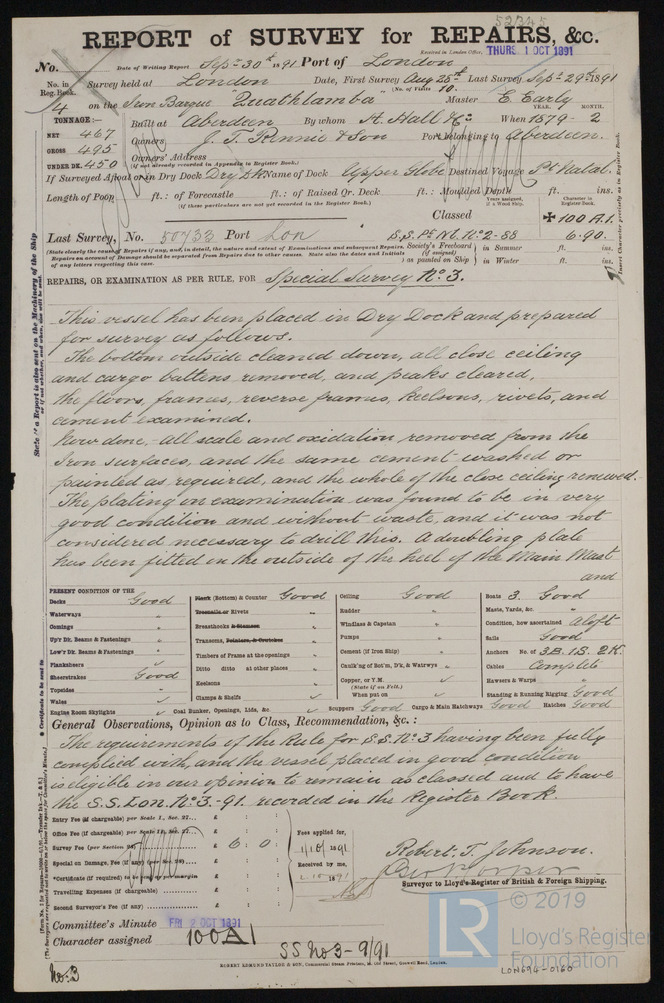 52345
REPORT of SURVEY for REPAIRS, &c.
Received in London Office, THURS. 1 OCT 1891
No. Date of Writing Report Sept 30th 1891 Port of London
No. in Reg. Book. Survey held at London Date, First Survey Aug 25th Last Survey Sept 29th 1891
(No. of Visits 10.
4 on the Iron Barque "Quathlamba" Master E. Early
TONNAGE:— YEAR. MONTH.
NET 467 Built at Aberdeen By whom A. Hall & Co. When 1879 - 2
GROSS 495 Owners J. T. Rennie & Son Port belonging to Aberdeen.
UNDER DK. 450 Owners' Address
(if not already recorded in Appendix to Register Book.)
If Surveyed Afloat or in Dry Dock Dry Dk Name of Dock Upper Globe Destined Voyage Pt Natal.
Length of Poop ft.: of Forecastle ft.: of Raised Qr. Deck ft.: Moulded Depth ft. ins.
(If these particulars are not yet recorded in the Register Book.)
Years assigned, if a Wood Ship. Character in Register Book.
Classed ✠ 100 A.1.
Last Survey, No. 50733 Port Lon S.S. Pt Nl. No 2-88 6.90.
(State clearly the cause of Repairs if any, and, in detail, the nature and extent of Examinations and subsequent Repairs.
Repairs on account of Damage should be separated from Repairs due to other causes. State also the dates and initials
of any letters respecting this case.)
Society's Freeboard (if assigned) as painted on Ship in Summer ft. ins.
in Winter ft. ins.
Insert Character precisely as in Register Book.
REPAIRS, OR EXAMINATION AS PER RULE, FOR Special Survey No. 3.
This vessel has been placed in Dry Dock and prepared
for survey as follows.
The bottom outside cleaned down, all close ceiling
and cargo battens removed, and peaks cleared,
the floors, frames, reverse frames, keelsons, rivets, and
cement examined.
Now done, - all scale and oxidation removed from the
Iron surfaces, and the same cement washed or
painted as required, and the whole of the close ceiling renewed.
The plating on examination was found to be in very
good condition and without waste, and it was not
considered necessary to drill this. A doubling plate
has been fitted on the outside of the heel of the Main Mast
and
State if a Report is also sent on the Machinery of the Ship
PRESENT CONDITION OF THE
Decks Good
Waterways "
Comings "
Up'r Dk. Beams & Fastenings "
Low'r Dk. Beams & Fastenings "
Planksheers
Sheerstrakes Good
Topsides
Wales
Engine Room Skylights
Plank (Bottom) & Counter Good
Treenails or Rivets "
Breasthooks & Stemson "
Transoms, Pointers, & Crutches "
Timbers of Frame at the openings "
Ditto ditto at other places "
Keelsons "
Clamps & Shelfs "
Coal Bunker, Openings, Lids, &c.
Ceiling Good
Rudder "
Windlass & Capstan "
Pumps "
Cement (if Iron Ship) "
Caulk'ng of Bot'm, D'k, & Waterwys "
Copper, or Y.M.
(State if on Felt.)
When put on
Scuppers Good Cargo & Main Hatchways Good Hatches Good
Boats 3. Good
Masts, Yards, &c. "
Condition, how ascertained Aloft
Sails Good
Anchors No. of 3B. 1S. 2K.
Cables Complete
Hawsers & Warps "
Standing & Running Rigging Good
General Observations, Opinion as to Class, Recommendation, &c. :
The requirements of the Rule for S.S. No. 3 having been fully
complied with, and the vessel placed in good condition
is eligible in our opinion to remain as classed and to have
the S.S. Lon. No. 3. - 91. recorded in the Register Book.
Entry Fee (if chargeable) per Scale I., Sec. 27... £ : :
Office Fee (if chargeable) per Scale II., Sec. 27... £ : :
Survey Fee (per Section 28) £ 6 : 0 :
Special on Damage, Fee (if any) (per Sec. 28) £ : :
*Certificate (if required) to be sent as per margin £ : :
Travelling Expenses (if chargeable) £ : :
Second Surveyor's Fee (if any) £ : :
Fees applied for, 1/10/1891
Received by me, 2.10.1891
Robert. T. Johnson.
Surveyor to Lloyd's Register of British & Foreign Shipping.
Committee's Minute FRI 2 OCT 1891
Character assigned 100A1
SS No 3 - 9/91
No: 3
ROBERT EDMUND TAYLOR & SON, Commercial Steam Printers, 19, Old Street, Goswell Road, London.
© 2019
LR
Lloyd's Register
Foundation
LON694-0160